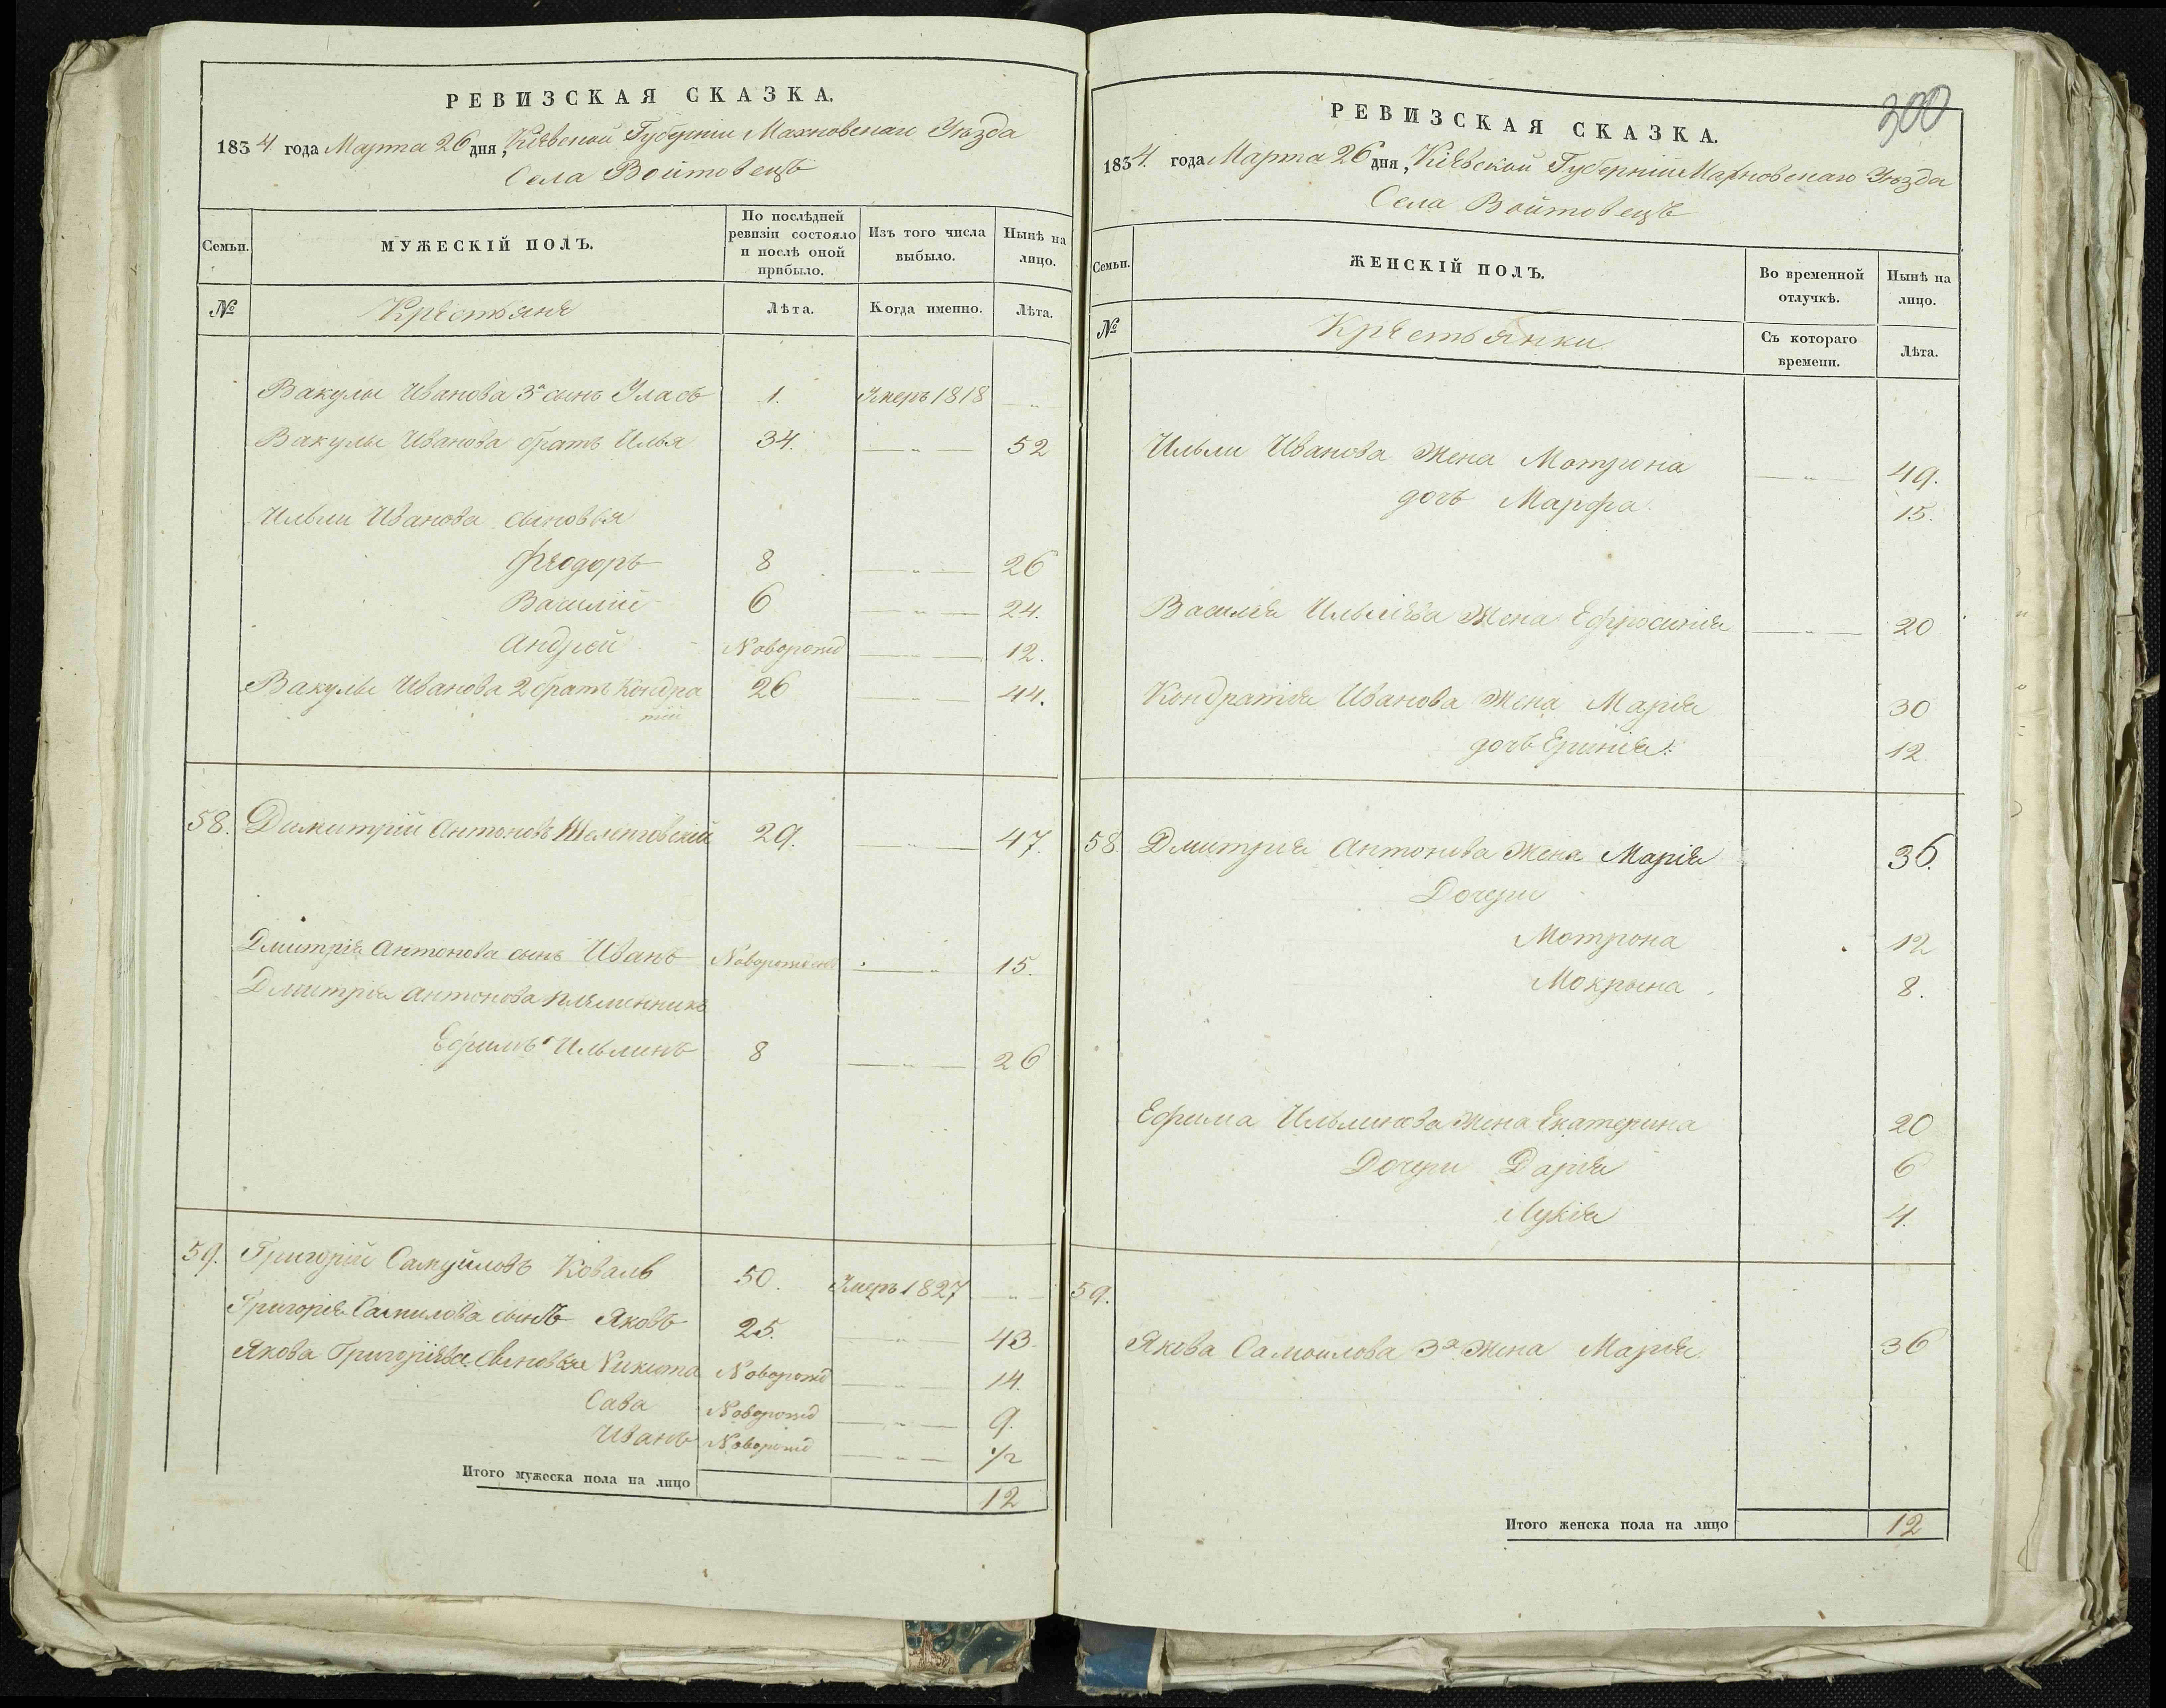 РЕВИЗСКАЯ СКАЗКА.
1834 года Марта 26 дня, Кіевской Губерніи Махновскаго Уѣзда
Села Войтовецъ
Семьи.
МУЖЕСКІЙ ПОЛЪ.
По послѣдней ревизіи состояло и послѣ оной прибыло.
Изъ того числа выбыло.
Нынѣ на лицо.
№
Крестьяне
Лѣта.
Когда именно.
Лѣта.
Вакулы Иванова 3й сынъ Уласъ 1. Умеръ 1818 —„—
Вакулы Иванова братъ Илья 34. —„— 52
Ильи Иванова сыновья
Феодоръ 8 —„— 26
Василій 6 —„— 24.
Андрей Новорожд —„— 12.
Вакулы Иванова 2 братъ Кондра 26 —„— 44.
тій
58. Димитрій Антоновъ 29. —„— 47.
Дмитрія Антонова сынъ Иванъ Новорожден —„— 15.
Дмитрія Антонова племенникъ
Ефимъ Ильинъ 8 —„— 26
59. Григорій Самуйловъ Коваль 50. Умеръ 1827 —„—
Григорія Самилова сынъ Яковъ 25. —„— 43
Якова Григоріева сыновья Никита Новорожд —„— 14.
Сава Новорожд —„— 9.
Иванъ Новорожд —„— 1/2
Итого мужеска пола на лицо 12
300
РЕВИЗСКАЯ СКАЗКА.
1834. года Марта 26 дня, Кіевской Губерніи Махновскаго Уѣзда
Села Войтовецъ
Семьи.
ЖЕНСКІЙ ПОЛЪ.
Во временной отлучкѣ.
Нынѣ на лицо.
№
Крестьянки
Съ котораго времени.
Лѣта.
Ильи Иванова Жена Мотрона —„— 49.
дочь Марфа. 15.
Василія Ильіева Жена Ефросинія —„— 20
Кондратія Иванова Жена Марія 30
дочь Еринія. 12.
58. Дмитрія Антонова Жена Марія 36.
Дочери
Мотрона 12
Мокрына 8.
Ефима Ильинова Жена Екатерина 20
Дочери Дарія 6
Лукія 4.
59.
Якова Самоилова 3я Жена Марія 36
Итого женска пола на лицо 12